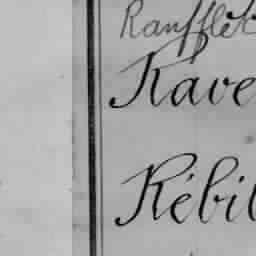 Ranfflet
Rave
Rébil